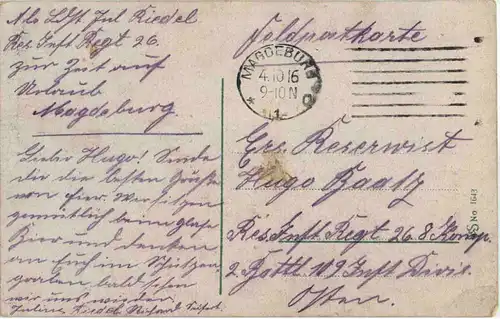 Abs Ldst Jul Riedel
Res. Inft Regt 26.
zur Zeit auf
Urlaub
Magdaburg
Lieber Hugo! Sende
dir die besten Grüße
von hier. Wir sitzen
gemütlich beim glase
Bier und denken
an Euch im Schützen
graben bald sehn
wir uns wieder.
Julius Riedel Richard
Feldpostkarte
MAGDEBURG
4.10.16
9-10 N
* 1
Ers. Reservist
Hugo Baatz
Res Inft Regt 26 8 Komp.
2 Battl 113 Inft Divis.
Osten.
No 1643